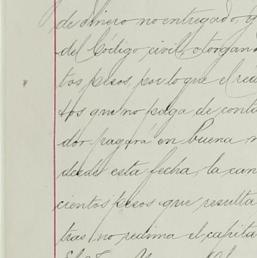 de dinero no entregado y
del Código civil, otorgan
tos pesos, por lo que el reci
tos que no paga de conta
dor pagará en buena m
desde esta fecha la can
cientos pesos que resulta
tras no redima el capita